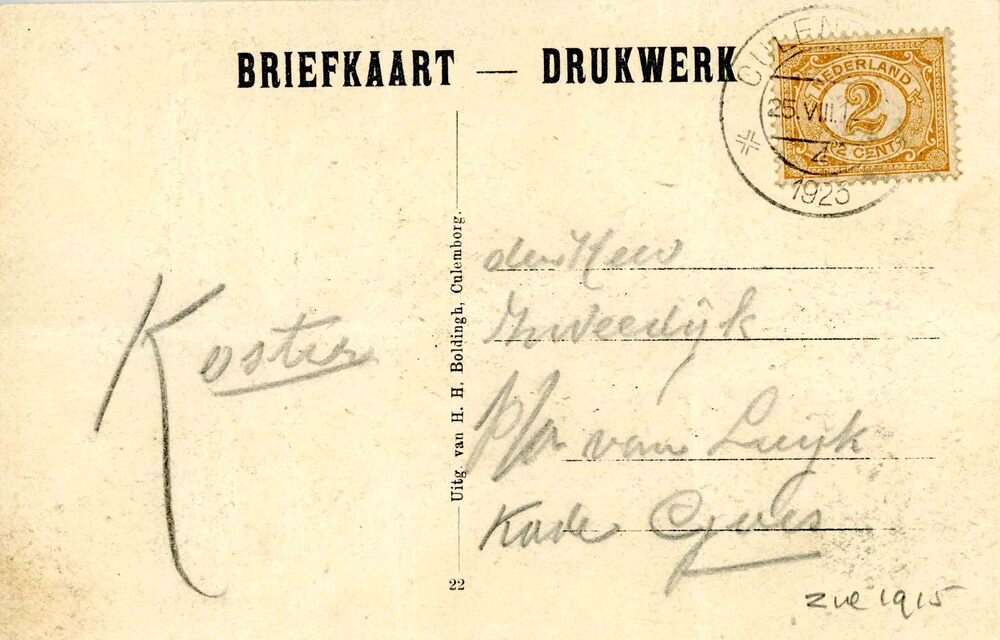 BRIEFKAART — DRUKWERK
CULEM
25.VIII.1
4
1923
NEDERLAND
2
2 CENT
Koster
Uitg. van H. H. Boldingh, Culemborg.
22
den Heer
Inveedijk
p/a van Luijk
Kade Goes
zie 1915